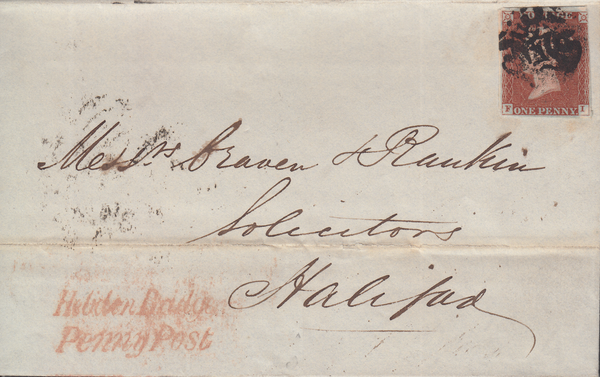 POSTAGE
F ONE PENNY I
Messrs Craven & Rankin
Solicitors
Halifax
Hebden Bridge
Penny Post